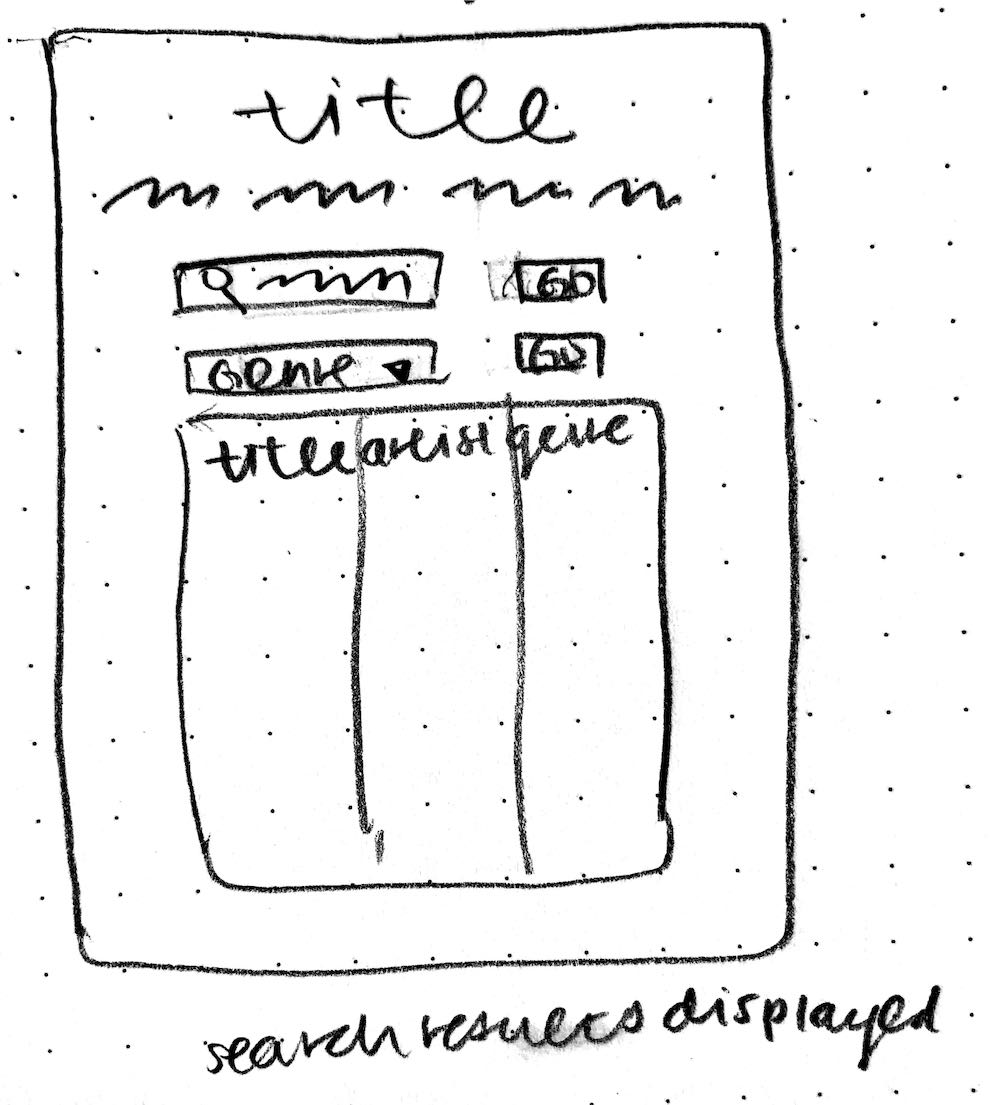 title
Go
Genre
Go
title artist genre
search results displayed